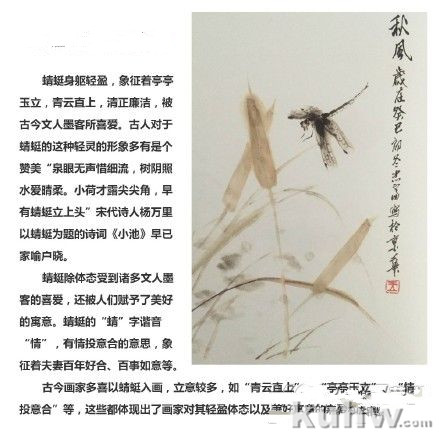 蜻蜓身躯轻盈，象征着亭亭
玉立，青云直上，清正廉洁，被
古今文人墨客所喜爱。古人对于
蜻蜓的这种轻灵的形象多有是个
赞美“泉眼无声惜细流，树阴照
水爱晴柔。小荷才露尖尖角，早
有蜻蜓立上头”宋代诗人杨万里
以蜻蜓为题的诗词《小池》早已
家喻户晓。
蜻蜓除体态受到诸多文人墨
客的喜爱，还被人们赋予了美好
的寓意。蜻蜓的“蜻”字谐音
“情”，有情投意合的意思，象
征着夫妻百年好合、百事如意等。
古今画家多喜以蜻蜓入画，立意较多，如“青云直上”、“亭亭玉立”、“情
投意合”等，这些都体现出了画家对其轻盈体态以及美好寓意的
秋风
岁在癸巳
kuhw.com